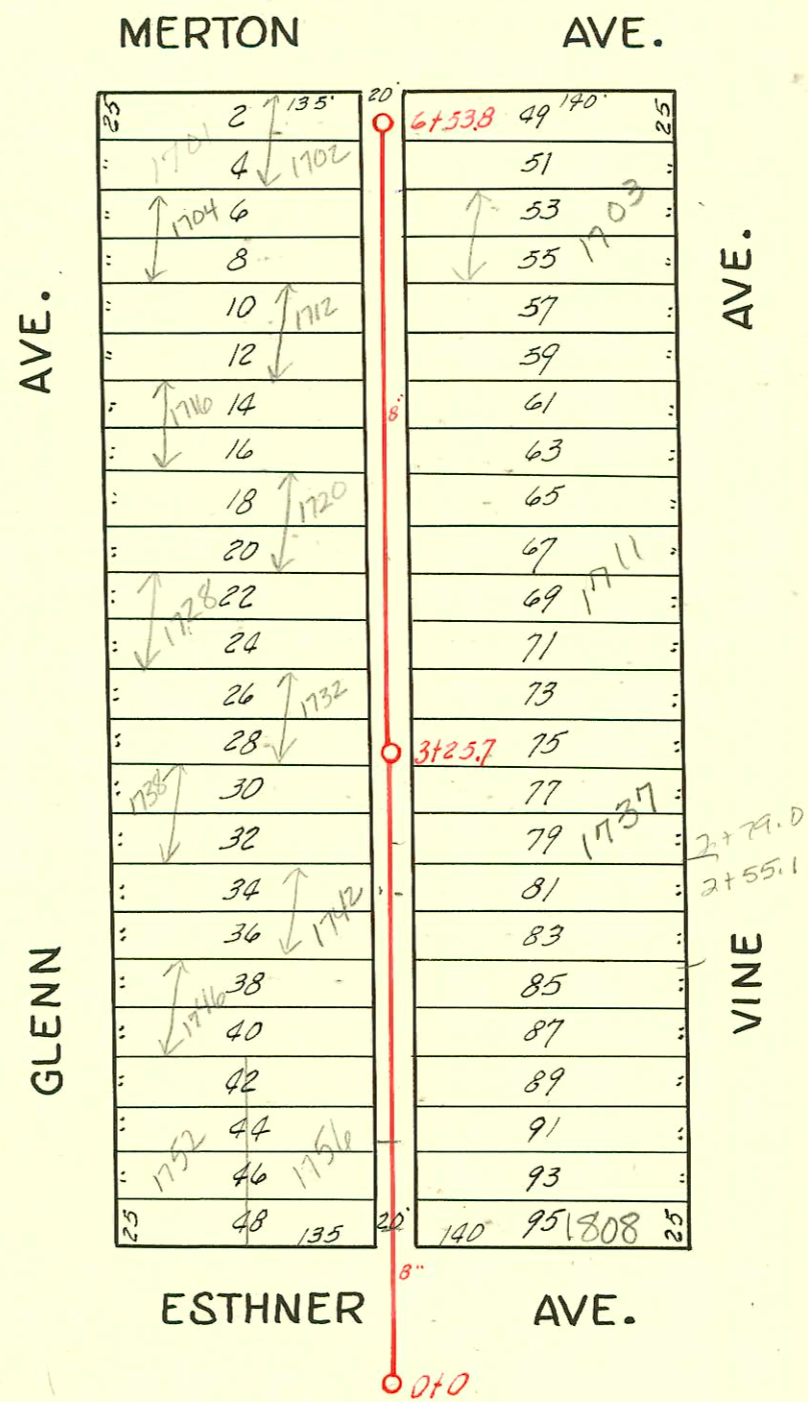 MERTON AVE.
25 2 135' 20' 6+53.8 49 140' 25
1701 4 1702 51
1704 6 53 1703
8 55
10 1712 57
12 59
1716 14 61
16 8" 63
18 1720 65
20 67
1728 22 69 1711
24 71
26 1732 73
28 3+25.7 75
1738 30 77
32 79 1737 2+79.0
34 1742 81 2+55.1
36 83
1746 38 85
40 87
42 89
44 91
1752 46 1756 93
25 48 135 20' 140 95 1808 25
GLENN AVE.
VINE AVE.
8"
ESTHNER AVE.
0+0